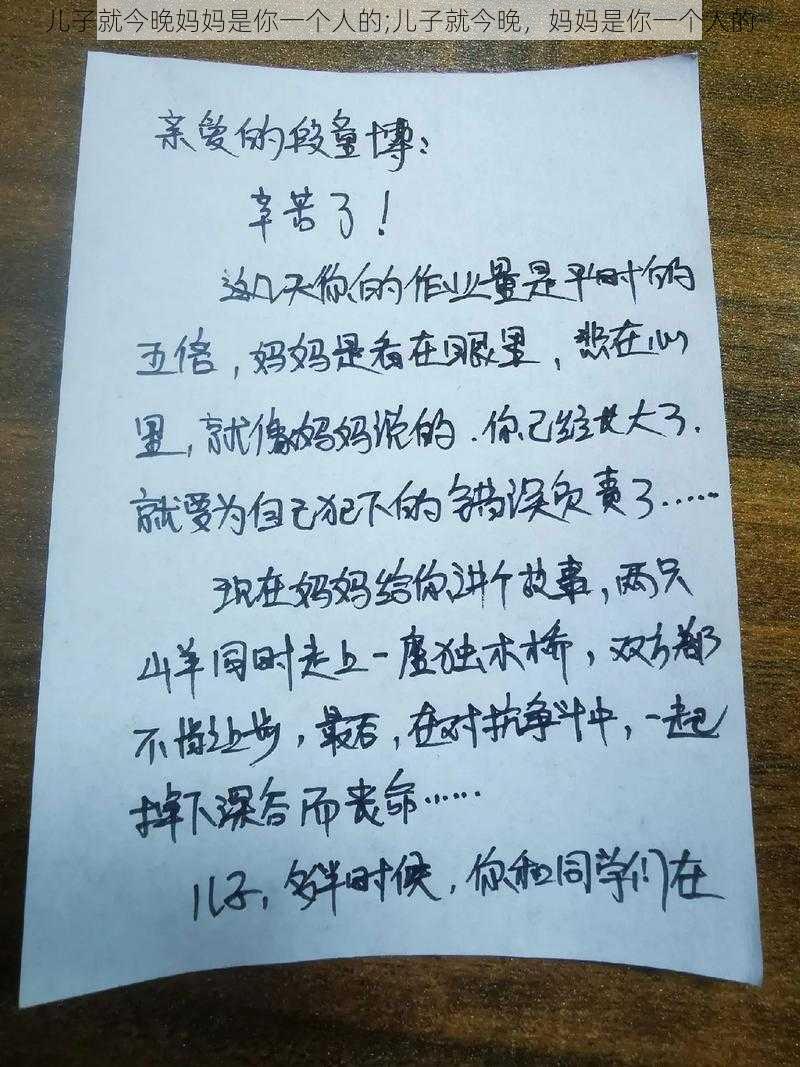 儿子就今晚妈妈是你一个人的;儿子就今晚，妈妈是你一个人的
亲爱的段童博：
辛苦了！
这几天你的作业量是平时的
五倍，妈妈是看在眼里，愁在心
里，就像妈妈说的．你已经长大了．
就要为自己犯下的错误负责了……
现在妈妈给你讲个故事，两只
山羊同时走上一座独木桥，双方都
不肯让步，最后，在对抗争斗中，一起
掉下深谷而丧命……
儿子，多半时候，你和同学们在